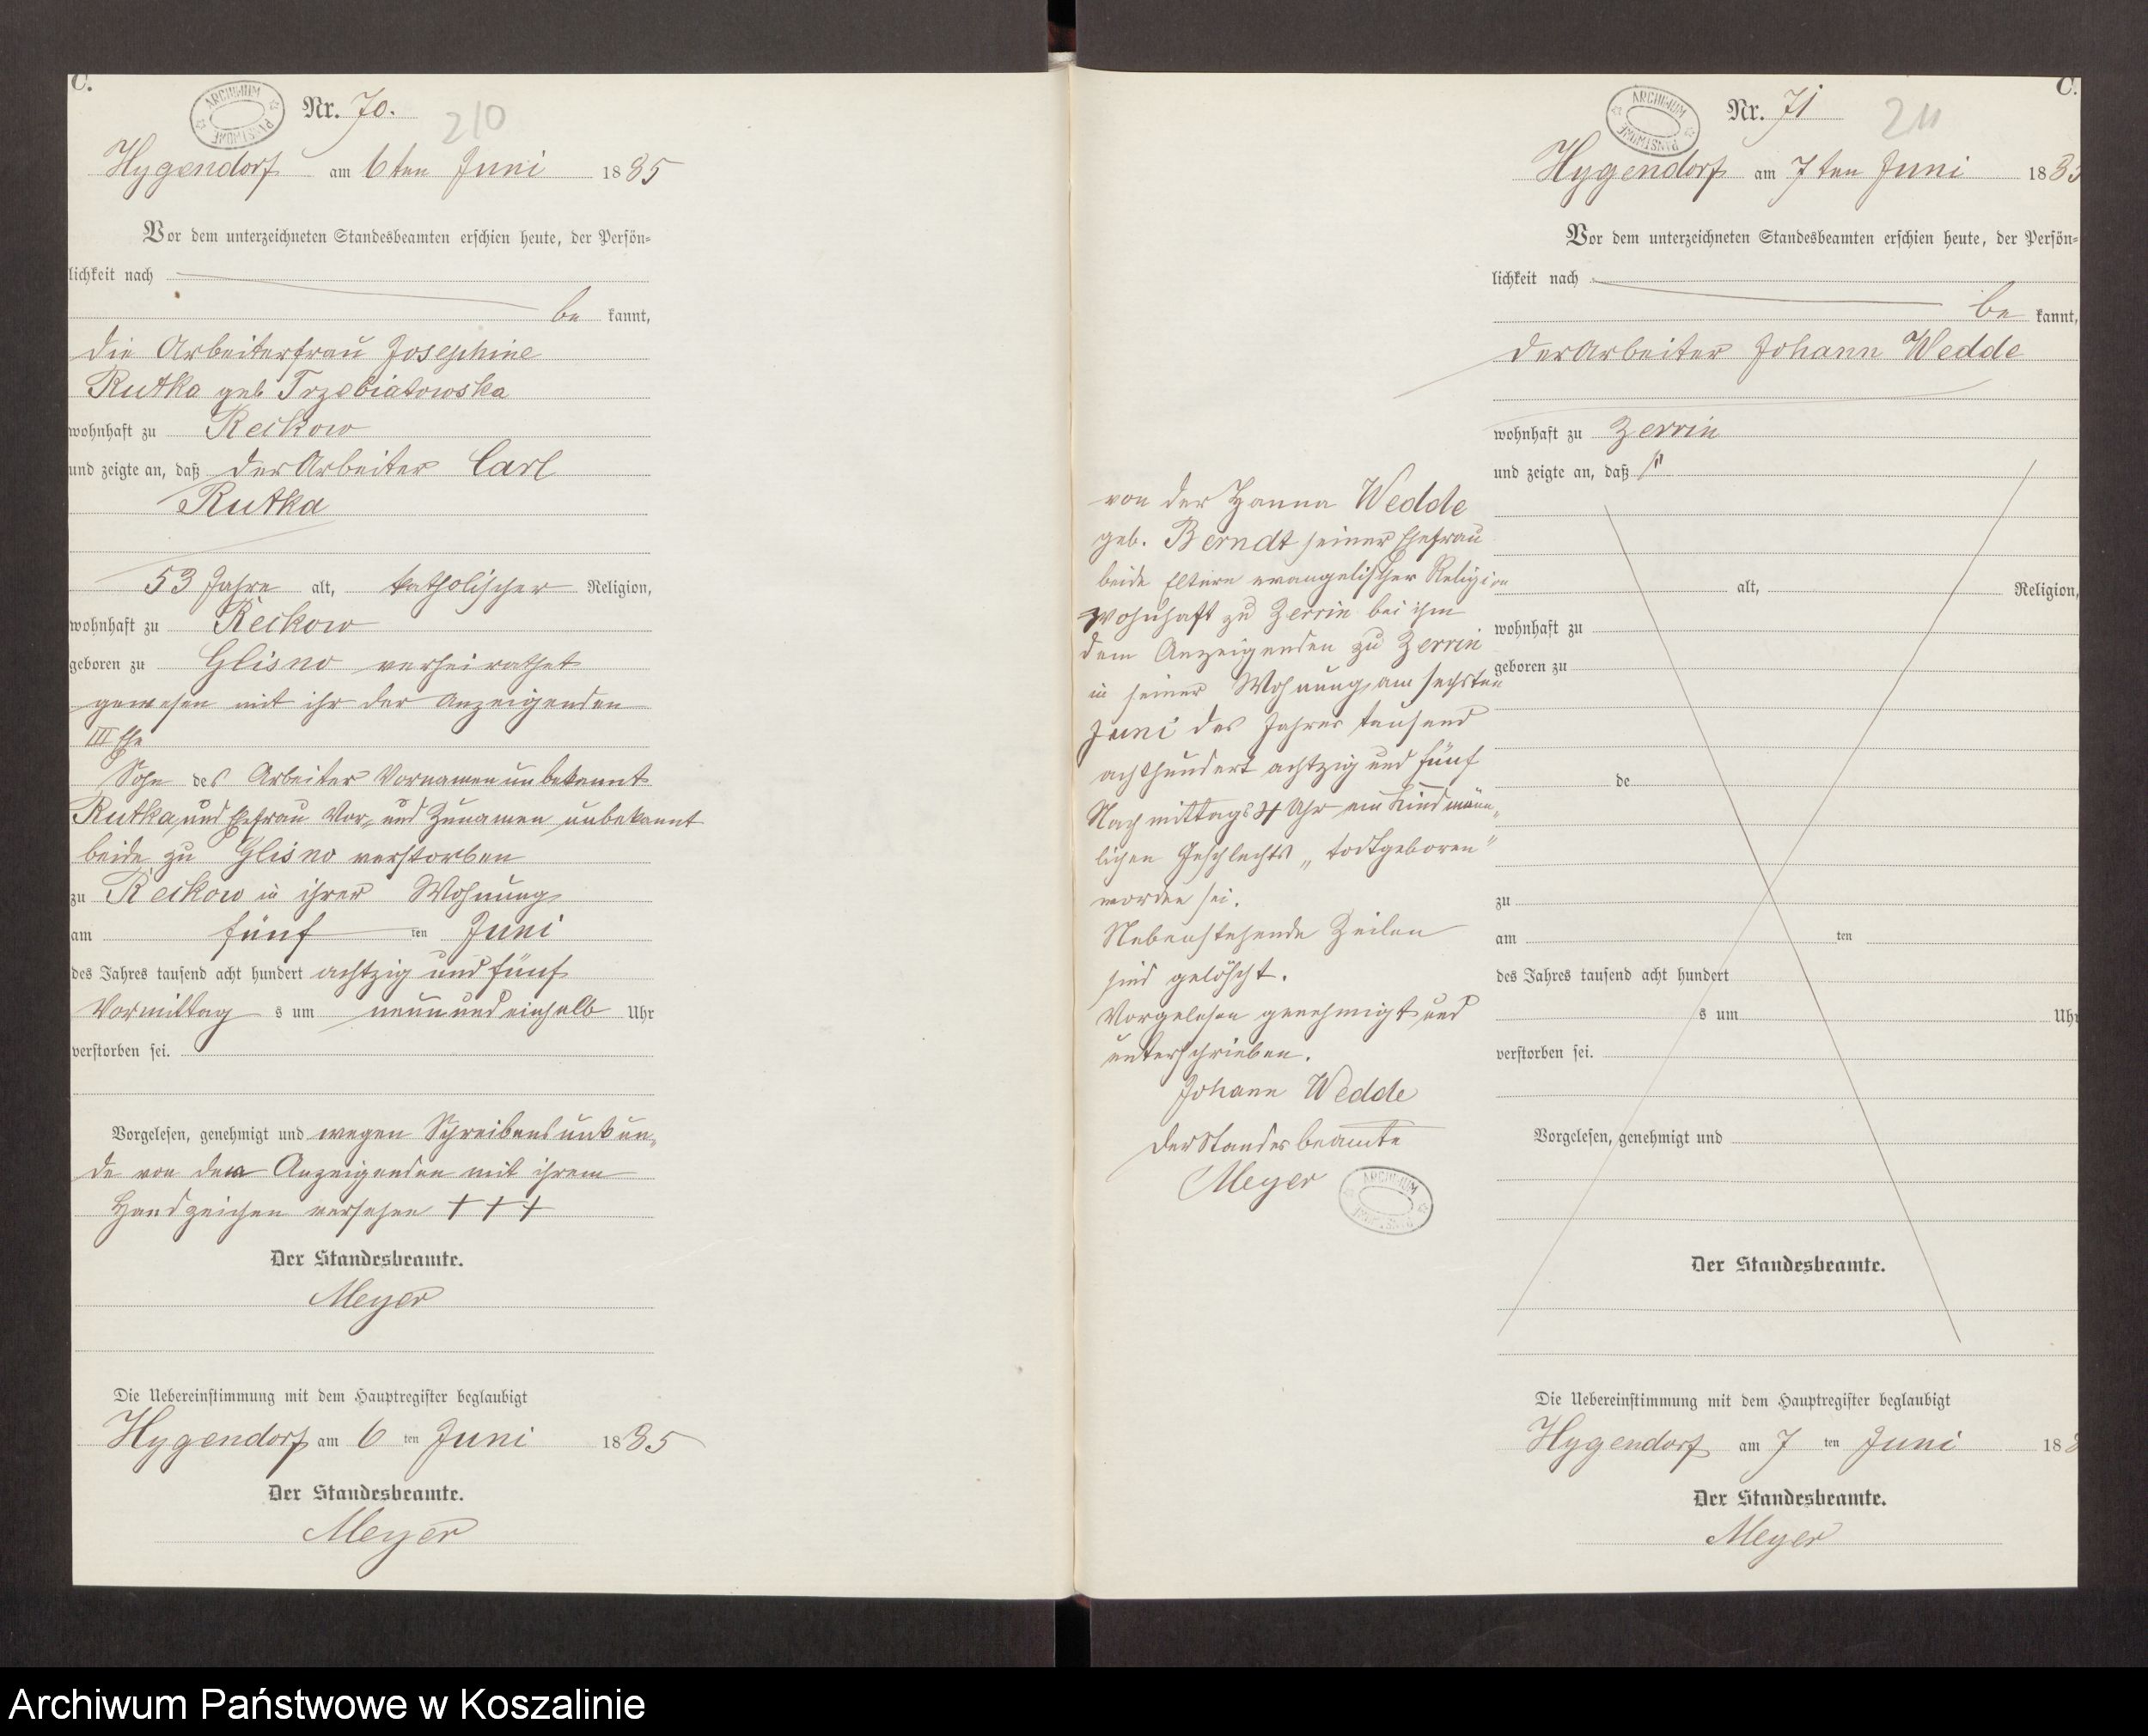 C.
ARCHIWUM PAŃSTWOWE
Nr. 70.
210
Hygendorf am 6ten Juni 1885
Vor dem unterzeichneten Standesbeamten erschien heute, der Persön-
lichkeit nach
be kannt,
die Arbeiterfrau Josephine
Rutka geb Trzebiatowska
wohnhaft zu Reckow
und zeigte an, daß der Arbeiter Carl
Rutka
53 Jahre alt, katholischer Religion,
wohnhaft zu Reckow
geboren zu Glisno verheirathet
gewesen mit ihr der Anzeigenden
III Ehe
Sohn des Arbeiter Vornamen unbekannt
Rutka und Ehefrau Vor- und Zunamen unbekannt
beide zu Glisno verstorben
zu Reckow in ihrer Wohnung
am fünf ten Juni
des Jahres tausend acht hundert achtzig und fünf
Vormittag s um neun und einhalb Uhr
verstorben sei.
Vorgelesen, genehmigt und wegen Schreibensunkun-
de von der Anzeigenden mit ihrem
Handzeichen versehen + + +
Der Standesbeamte.
Meyer
Die Uebereinstimmung mit dem Hauptregister beglaubigt
Hygendorf am 6 ten Juni 1885
Der Standesbeamte.
Meyer
C.
ARCHIWUM PAŃSTWOWE
Nr. 71
211
Hygendorf am 7ten Juni 188
Vor dem unterzeichneten Standesbeamten erschien heute, der Persön-
lichkeit nach
be kannt,
der Arbeiter Johann Wedde
wohnhaft zu Zerrin
und zeigte an, daß
von der Hanna Wedde
geb. Berndt seiner Ehefrau
beide Eltern evangelischer Religion
wohnhaft zu Zerrin bei ihm
dem Anzeigenden zu Zerrin
in seiner Wohnung am sechsten
Juni des Jahres tausend
achthundert achtzig und fünf
Nachmittags 4 Uhr ein Kind männ-
lichen Geschlechts „todtgeboren"
worden sei.
Nebenstehende Zeilen
sind gelöscht.
Vorgelesen genehmigt und
unterschrieben.
Johann Wedde
der Standesbeamte
Meyer
ARCHIWUM PAŃSTWOWE
alt, Religion,
wohnhaft zu
geboren zu
de
zu
am ten
des Jahres tausend acht hundert
s um Uhr
verstorben sei.
Vorgelesen, genehmigt und
Der Standesbeamte.
Die Uebereinstimmung mit dem Hauptregister beglaubigt
Hygendorf am 7 ten Juni 188
Der Standesbeamte.
Meyer
Archiwum Państwowe w Koszalinie